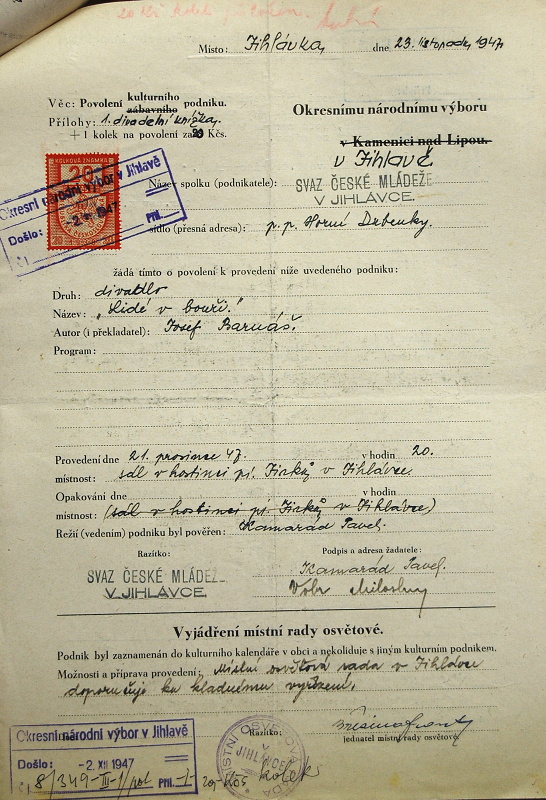 20 Kčs kolek
Místo: Jihlávka, dne 23. listopadu 1947
Věc: Povolení kulturního zábavního podniku.
Přílohy: 1. divadelní knížka,
+ 1 kolek na povolení za 20 Kčs.
Okresnímu národnímu výboru
v Kamenici nad Lipou.
v Jihlavě
KOLKOVÁ ZNÁMKA
20
Okresní národní výbor v Jihlavě
Došlo: -2. XII 1947
Čj. Příl.
Název spolku (podnikatele): SVAZ ČESKÉ MLÁDEŽE
V JIHLÁVCE.
sídlo (přesná adresa): p. p. Horní Dubenky.
žádá tímto o povolení k provedení níže uvedeného podniku:
Druh: divadlo
Název: „Lidé v bouři."
Autor (i překladatel): Josef Barnáš.
Program:
Provedení dne 21. prosince 47. v hodin 20.
místnost: sál v hostinci pí. Jirků v Jihlávce.
Opakování dne v hodin
místnost: (sál v hostinci pí. Jirků v Jihlávce)
Režií (vedením) podniku byl pověřen: Kamarád Pavel.
Razítko: Podpis a adresa žadatele:
SVAZ ČESKÉ MLÁDEŽE
V JIHLÁVCE.
Kamarád Pavel.
Miloslav
Vyjádření místní rady osvětové.
Podnik byl zaznamenán do kulturního kalendáře v obci a nekoliduje s jiným kulturním podnikem.
Možnosti a příprava provedení: Místní osvětová rada v Jihlávce
doporučuje ku kladnému vyřízení.
Razítko:
jednatel místní rady osvětové.
MÍSTNÍ OSVĚTOVÁ RADA
V JIHLÁVCE
Okresní národní výbor v Jihlavě
Došlo: -2. XII 1947
Čj. 8/349-III-1/ Příl. -1-
20,- Kčs kolek